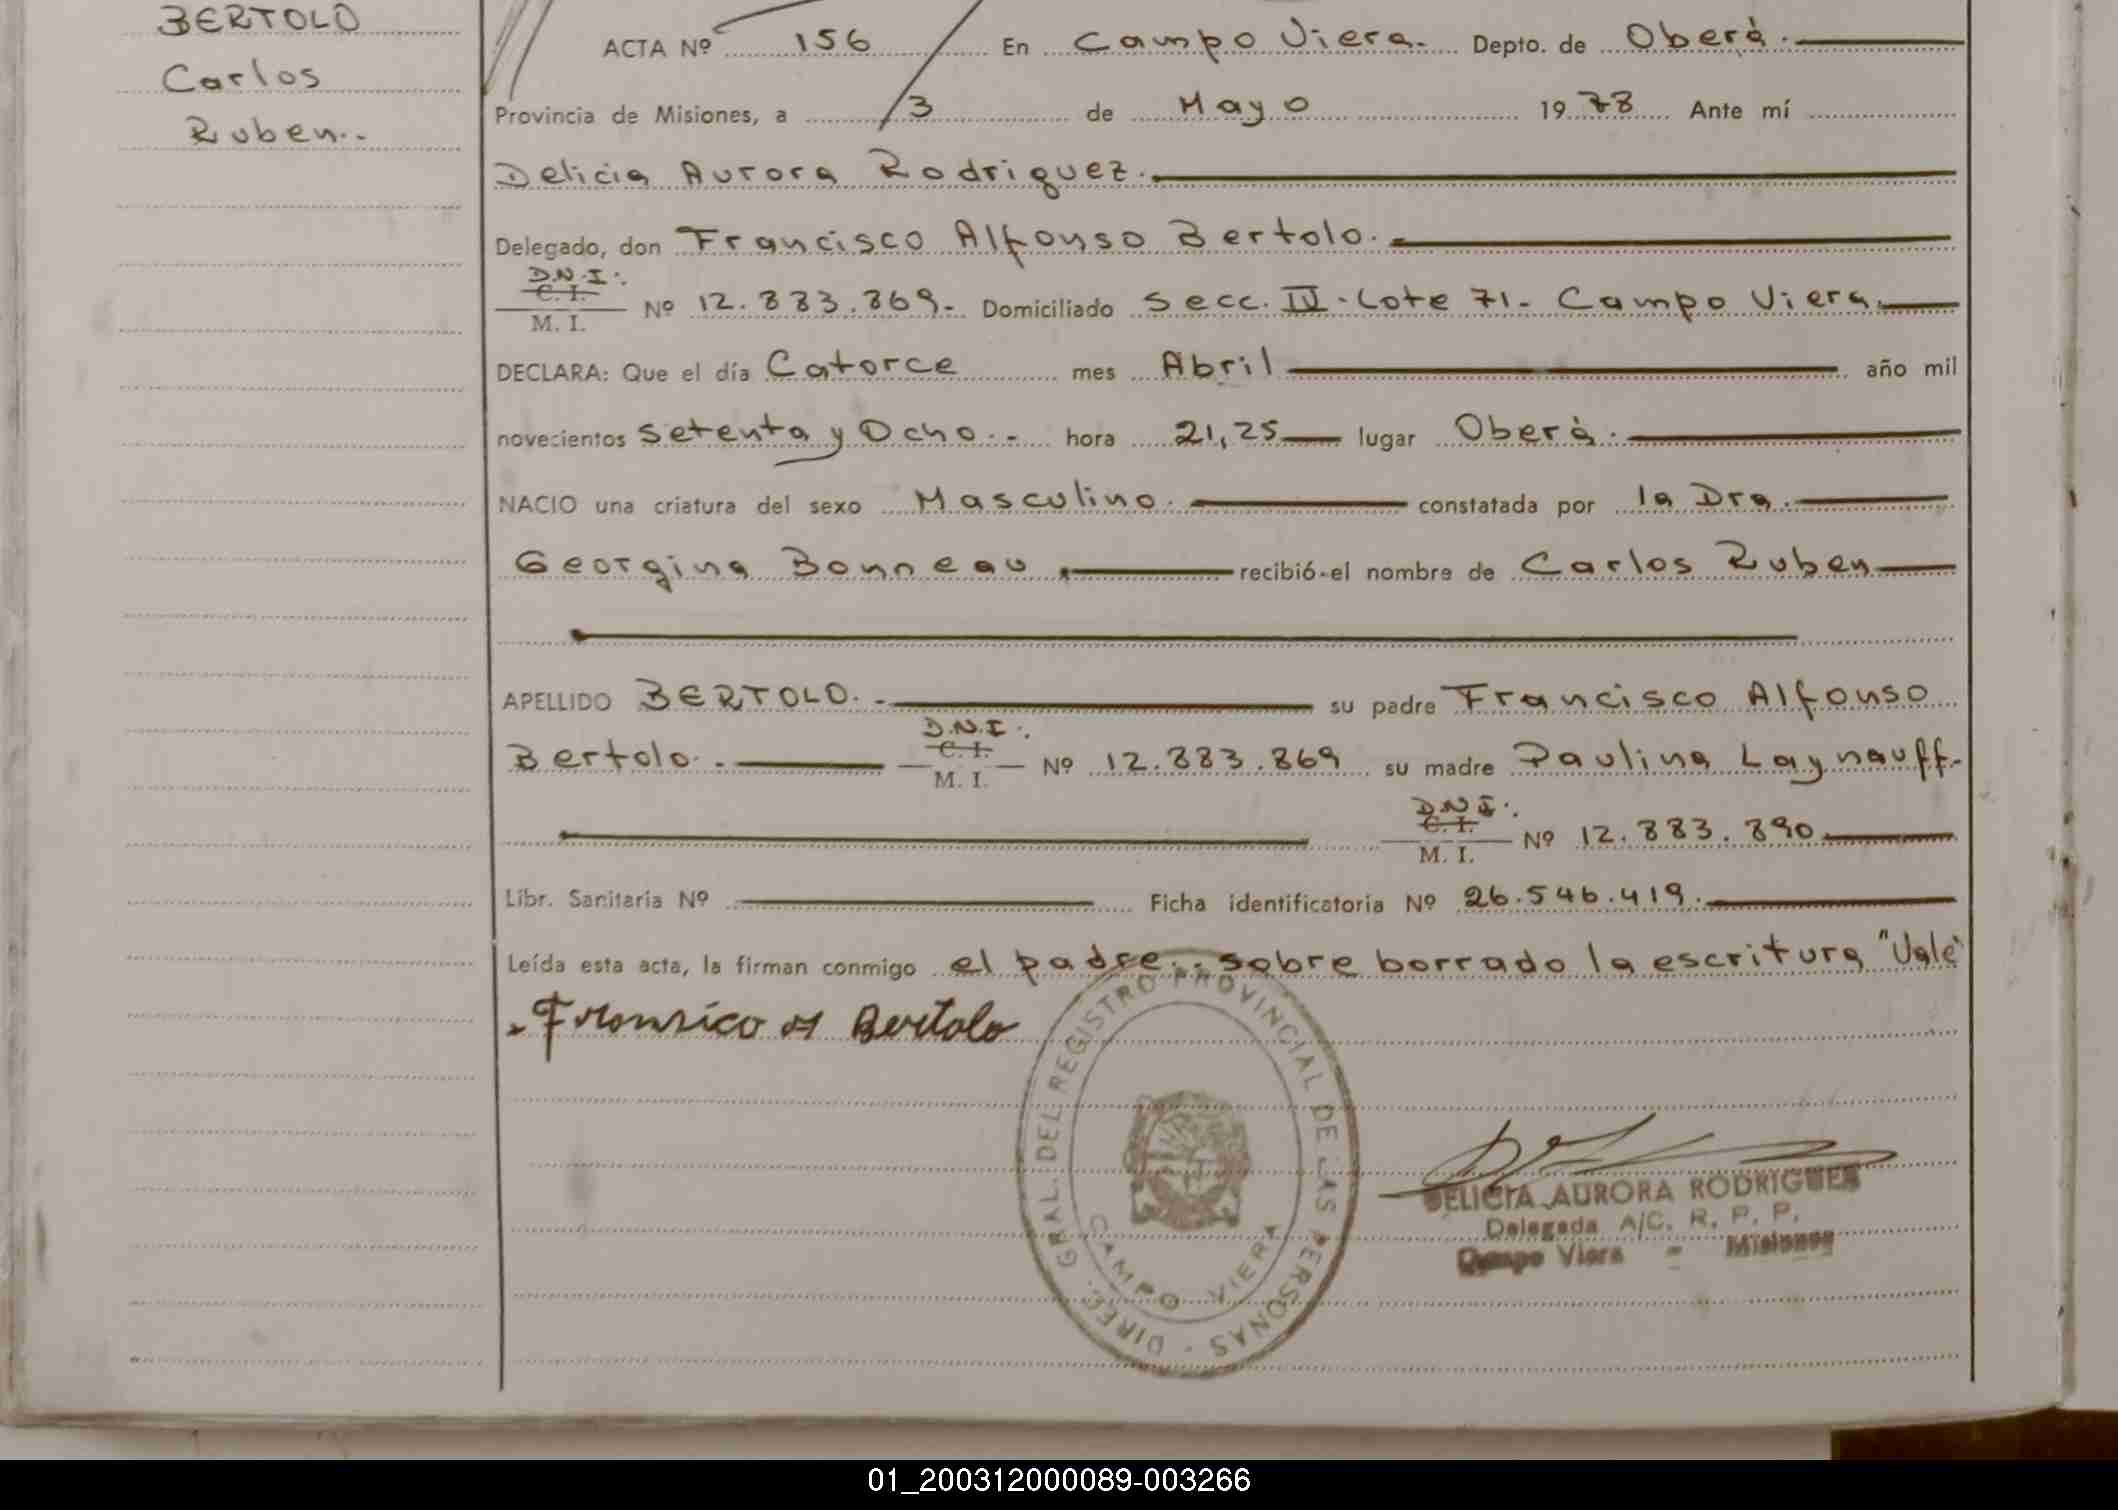 BERTOLO
Carlos
Ruben..
ACTA Nº 156 En Campo Viera. Depto. de Oberá.
Provincia de Misiones, a 3 de Mayo 1978 Ante mí
Delicia Aurora Rodriguez.
Delegado, don Francisco Alfonso Bertolo.
D.N.I.
C. I.
M. I. Nº 12.883.869- Domiciliado Secc. IV. Lote 71- Campo Viera.
DECLARA: Que el día Catorce mes Abril año mil
novecientos Setenta y Ocho.- hora 21,25 lugar Oberá.
NACIO una criatura del sexo Masculino. constatada por la Dra.
Georgina Bonneau. recibió el nombre de Carlos Ruben
APELLIDO BERTOLO. - su padre Francisco Alfonso
D.N.I.
C. I.
Bertolo. - M. I. Nº 12.883.869 su madre Paulina Laynauff.
D.N.I.
C. I.
M. I. Nº 12.883.890
Libr. Sanitaria Nº Ficha identificatoria Nº 26.546.419.
Leída esta acta, la firman conmigo el padre.. sobre borrado la escritura "Vale"
Fransico A Bertolo
DIREC. GRAL. DEL REGISTRO PROVINCIAL DE LAS PERSONAS
CAMPO VIERA
DELICIA AURORA RODRIGUEZ
Delegada A/C. R. P. P.
Campo Viera - Misiones
01_200312000089-003266